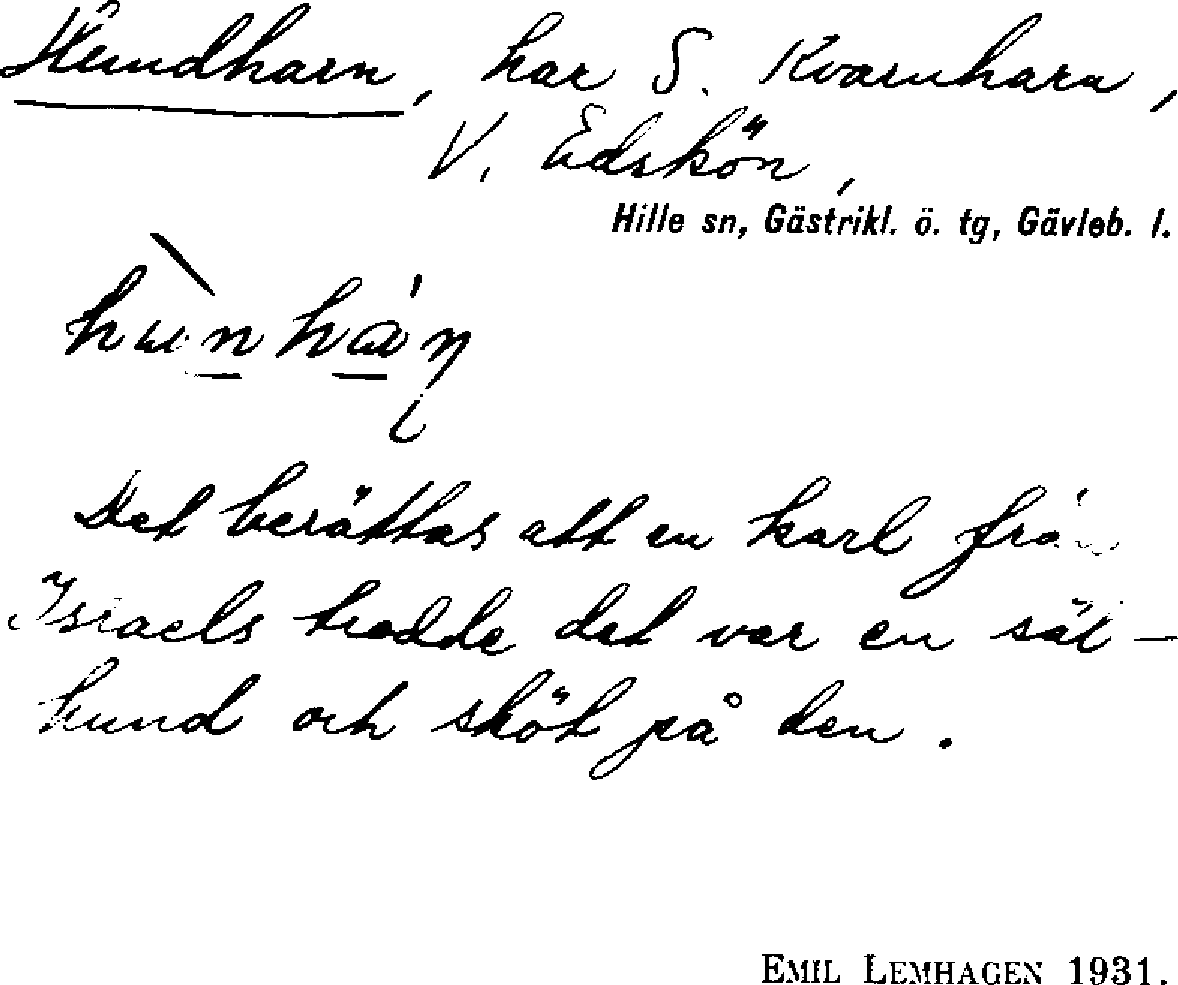 Hundharn, har S. Kvarnharn,
V. Edskön,
Hille sn, Gästrikl. ö. tg, Gävleb. l.
Det berättas att en karl från
Israels trodde det var en säl-
hund och sköt på den.
EMIL LEMHAGEN 1931.